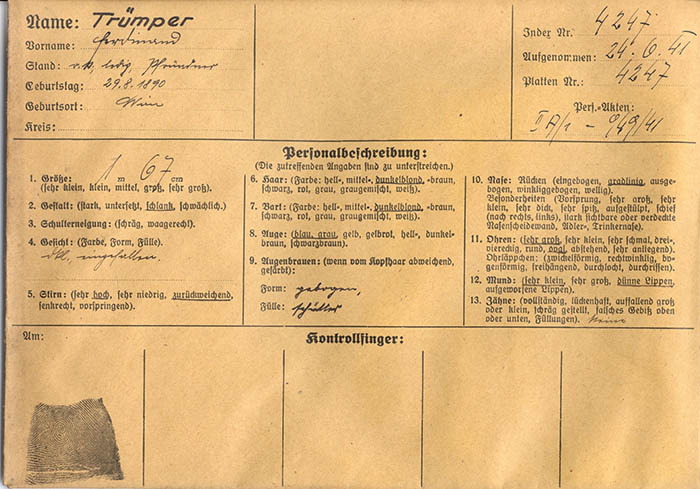 Name: Trümper
Vorname: Ferdinand
Stand: r.k, ledig, Pfründner
Geburtstag: 29.8.1890
Geburtsort: Wien
Kreis:
Index Nr. 4247
Aufgenommen: 24.6.41
Platten Nr.: 4247
Pers.-Akten:
Personalbeschreibung:
(Die zutreffenden Angaben sind zu unterstreichen.)
1. Größe: 1 m 67 cm
(sehr klein, klein, mittel, groß, sehr groß).
2. Gestalt: (stark, untersetzt, schlank, schwächlich.)
3. Schulterneigung: (schräg, waagerecht).
4. Gesicht: (Farbe, Form, Fülle).
dkl, eingefallen
5. Stirn: (sehr hoch, sehr niedrig, zurückweichend,
senkrecht, vorspringend).
6. Haar: (Farbe: hell-, mittel-, dunkelblond, -braun,
schwarz, rot, grau, graugemischt, weiß).
7. Bart: (Farbe: hell-, mittel-, dunkelblond, -braun,
schwarz, rot, grau, graugemischt, weiß).
8. Auge: (blau, grau, gelb, gelbrot, hell-, dunkel-
braun, schwarzbraun).
9. Augenbrauen: (wenn vom Kopfhaar abweichend,
gefärbt):
Form: gebogen,
Fülle: schütter
10. Nase: Rücken (eingebogen, gradlinig, ausge-
bogen, winkliggebogen, wellig).
Besonderheiten (Vorsprung, sehr groß, sehr
klein, sehr dick, sehr spitz, aufgestülpt, schief
(nach rechts, links), stark sichtbare oder verdeckte
Nasenscheidewand, Adler-, Trinkernase).
11. Ohren: (sehr groß, sehr klein, sehr schmal, drei-,
viereckig, rund, oval, abstehend, sehr anliegend).
Ohrläppchen: (zwickelförmig, rechtwinklig, bo-
genförmig, freihängend, durchlocht, durchrissen).
12. Mund: (sehr klein, sehr groß, dünne Lippen,
aufgeworfene Lippen).
13. Zähne: (vollständig, lückenhaft, auffallend groß
oder klein, schräg gestellt, falsches Gebiß oben
oder unten, Füllungen). keine
Am:
Kontrollfinger: